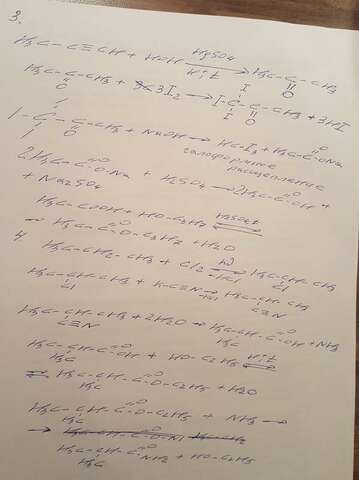 3.
HgSO4
H3C-C≡CH + HOH → H3C-C-CH3
H⁺,t
O
H3C-C-CH3 + 3I2 → I-C-C-CH3 + 3HI
O
I
I
O
I-C-C-CH3 + NaOH → HCI3 + H3C-C-ONa
I
O
галоформное
расщепление
2H3C-C-O-Na + H2SO4 → 2H3C-C-OH +
+ Na2SO4
H3C-COOH + HO-C3H7 H2SO4,t ⇌
→ H3C-C-O-C3H7 + H2O
4
H3C-CH2-CH3 + Cl2 hν → -HCl H3C-CH-CH3
Cl
H3C-CH-CH3 + K-C≡N → -KCl H3C-CH-CH3
Cl
C≡N
H3C-CH-CH3 + 2H2O → H3C-CH-C-OH + NH3
C≡N
H3C
H3C-CH-C-OH + HO-C2H5 H⁺,t ⇌
H3C
⇌ H3C-CH-C-O-C2H5 + H2O
H3C
H3C-CH-C-O-C2H5 + NH3 →
H3C
→ H3C-CH-C-NH2 + HO-C2H5
H3C